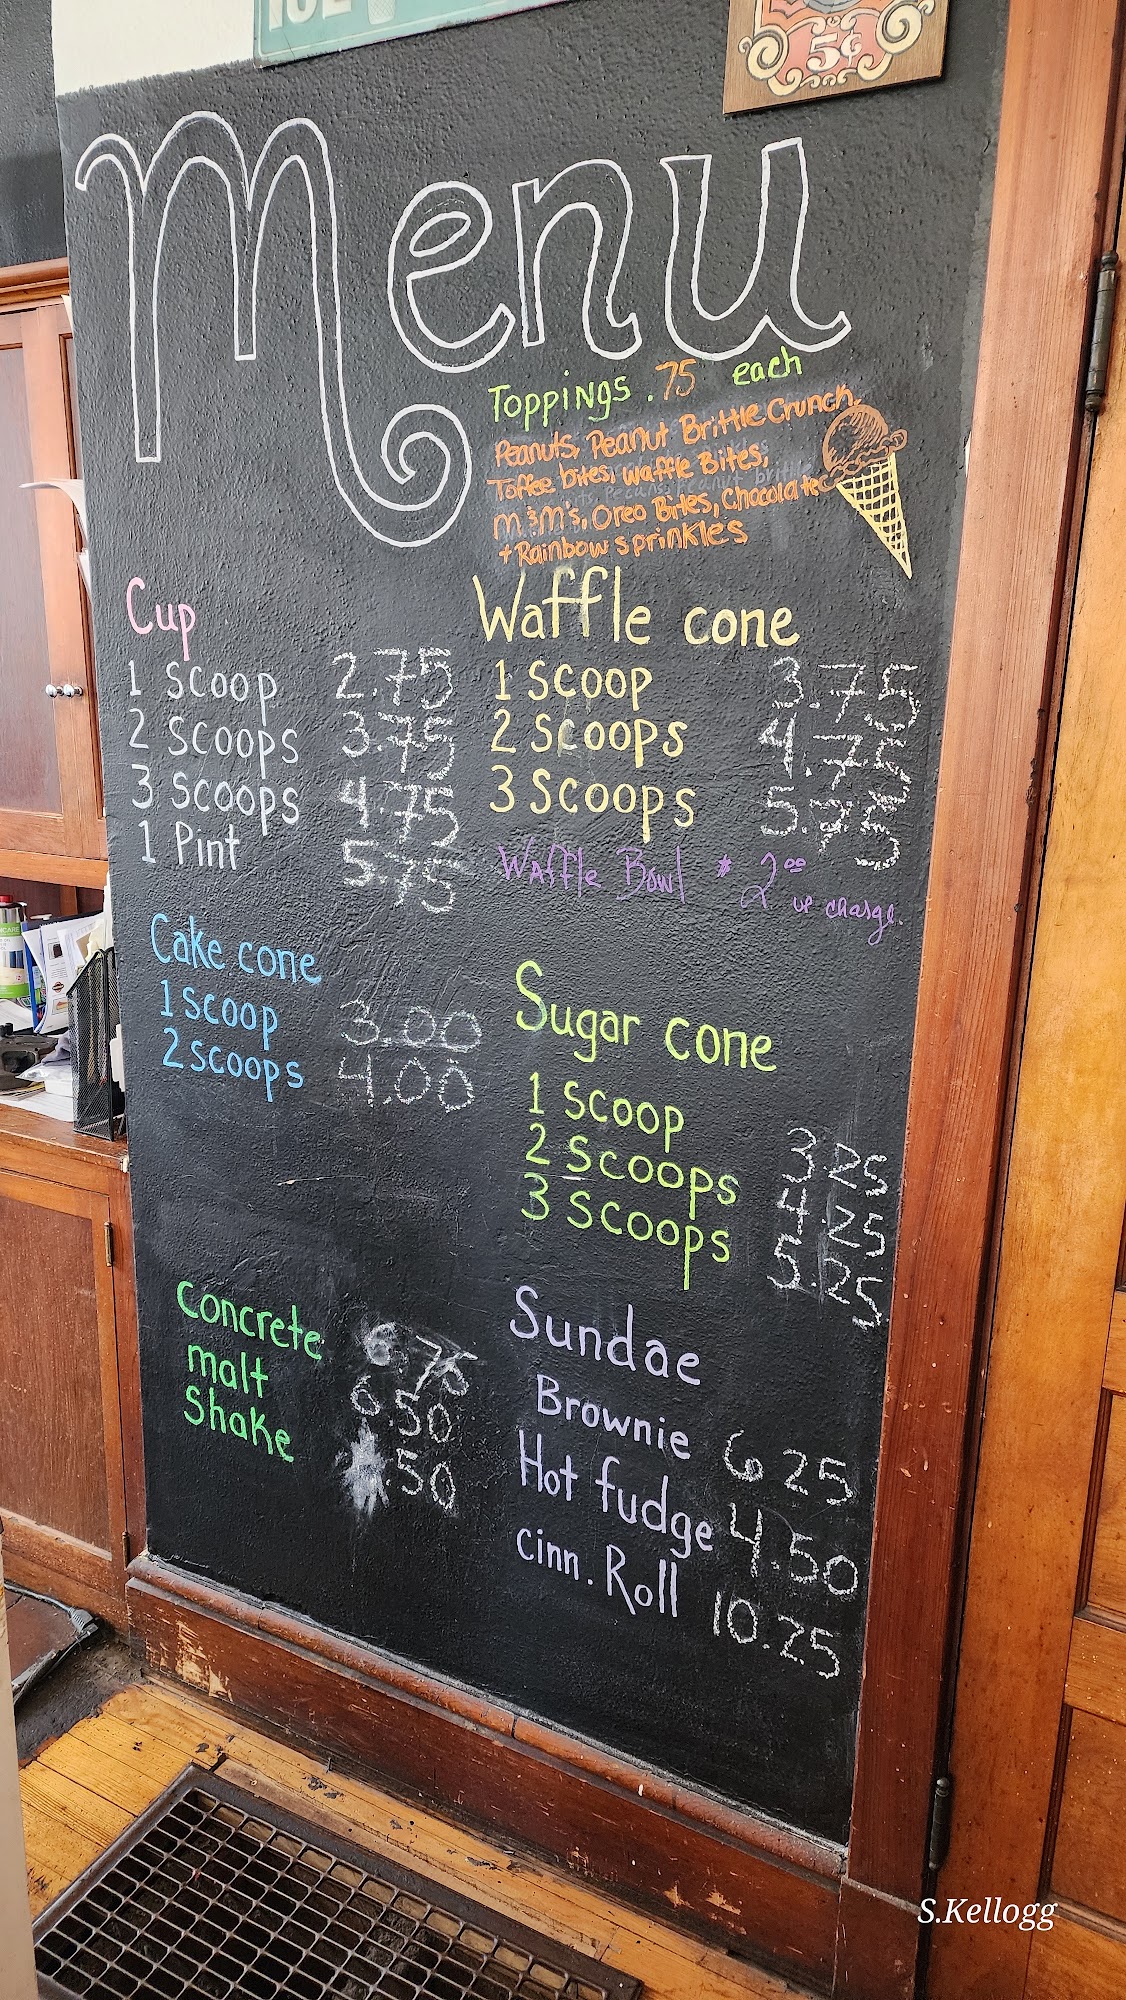 5¢
Menu
Toppings .75 each
Peanuts, Peanut Brittle Crunch,
Toffee bites, Waffle Bites,
m&m's, Oreo Bites, Chocolate
+ Rainbow sprinkles
Cup
1 scoop 2.75
2 scoops 3.75
3 scoops 4.75
1 Pint 5.75
Waffle cone
1 scoop 3.75
2 scoops 4.75
3 scoops 5.75
Waffle Bowl $ 2.00
up charge.
Cake cone
1 scoop 3.00
2 scoops 4.00
Sugar cone
1 scoop 3.25
2 scoops 4.25
3 scoops 5.25
Concrete 6.75
malt 6.50
Shake .50
Sundae
Brownie 6.25
Hot fudge 4.50
cinn. Roll 10.25
S.Kellogg